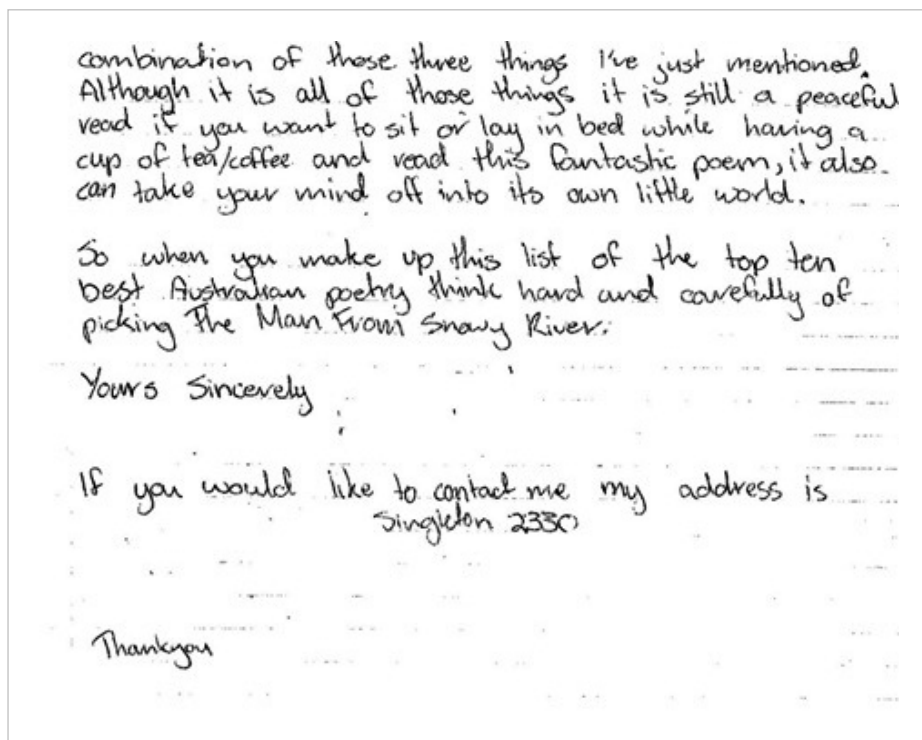 combination of those three things I've just mentioned.
Although it is all of those things it is still a peaceful
read if you want to sit or lay in bed while having a
cup of tea/coffee and read this fantastic poem, it also
can take your mind off into its own little world.
So when you make up this list of the top ten
best Australian poetry think hard and carefully of
picking The Man From Snowy River.
Yours Sincerely
If you would like to contact me my address is
Singleton 2330
Thankyou